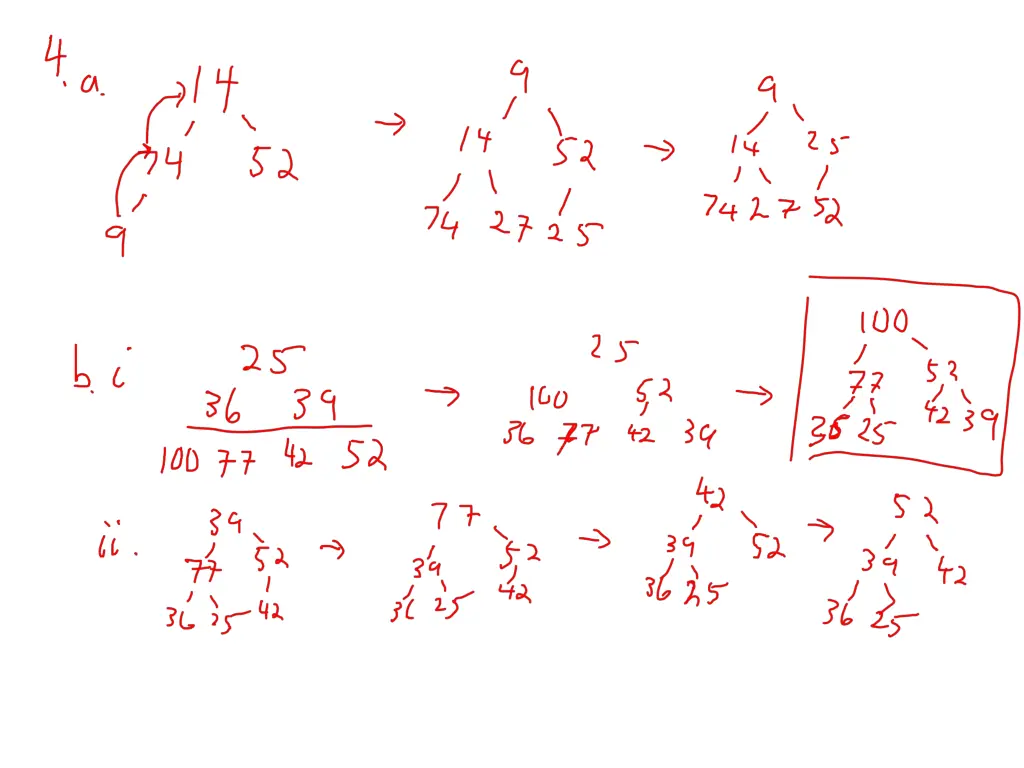 4. a. 14 → 9 → 9
74 52 14 52 14 25
9 74 27 25 74 27 52
b. i 25 → 25 → 100
36 39 100 52 77 52
100 77 42 52 36 77 42 39 36 25 42 39
ii. 39 → 77 → 42 → 52
77 52 39 52 39 52 39 42
36 25 42 36 25 42 36 25 36 25